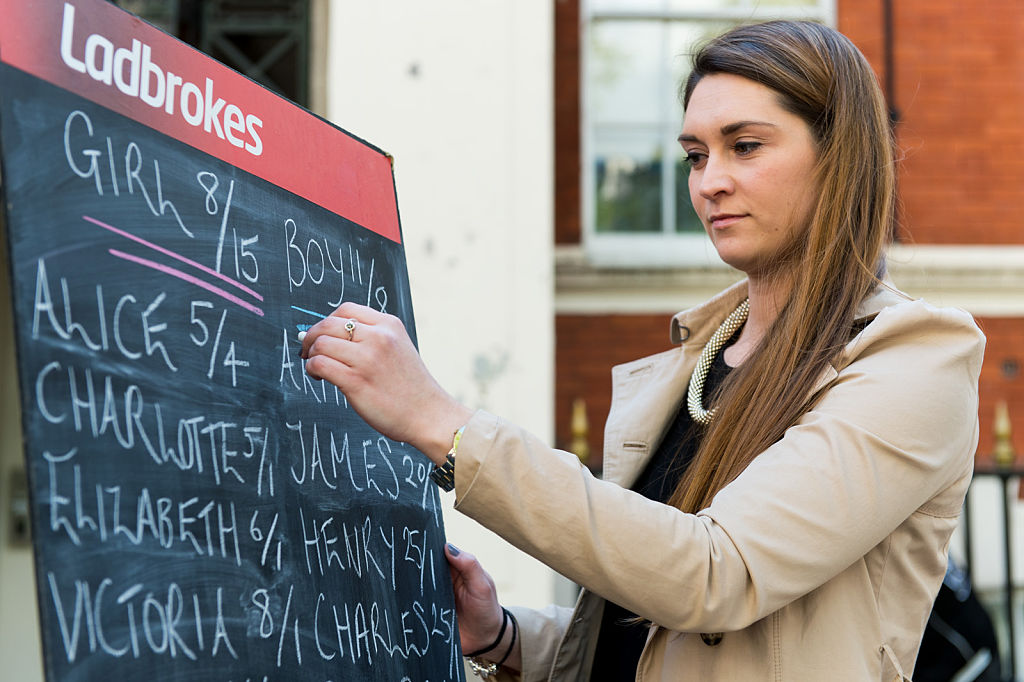 Ladbrokes
GIRL 8/15 BOY 11/8
ALICE 5/4
CHARLOTTE 5/1 JAMES
ELIZABETH 6/1 HENRY 25/1
VICTORIA 8/1 CHARLES 25